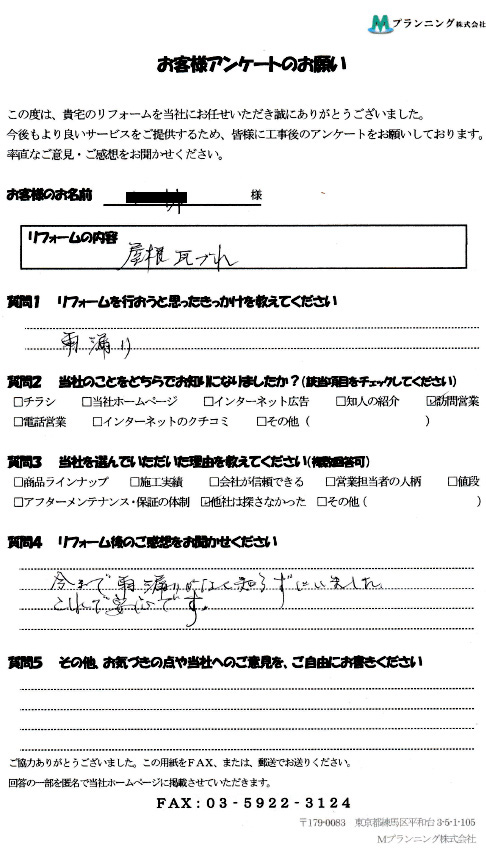 Mプランニング株式会社
お客様アンケートのお願い
この度は、貴宅のリフォームを当社にお任せいただき誠にありがとうございました。
今後もより良いサービスをご提供するため、皆様に工事後のアンケートをお願いしております。
率直なご意見・ご感想をお聞かせください。
お客様のお名前 様
リフォームの内容
屋根瓦づれ
質問1 リフォームを行おうと思ったきっかけを教えてください
雨漏り
質問2 当社のことをどちらでお知りになりましたか?(該当項目をチェックしてください)
□チラシ □当社ホームページ □インターネット広告 □知人の紹介 ☑訪問営業
□電話営業 □インターネットのクチコミ □その他 ( )
質問3 当社を選んでいただいた理由を教えてください(複数回答可)
□商品ラインナップ □施工実績 □会社が信頼できる □営業担当者の人柄 □値段
□アフターメンテナンス・保証の体制 ☑他社は探さなかった □その他 ( )
質問4 リフォーム後のご感想をお聞かせください
今まで雨漏り 知らずにいました
これで安心です。
質問5 その他、お気づきの点や当社へのご意見を、ご自由にお書きください
ご協力ありがとうございました。この用紙をFAX、または、郵送でお送りください。
回答の一部を匿名で当社ホームページに掲載させていただきます。
FAX:03-5922-3124
〒179-0083 東京都練馬区平和台3-5-1-105
Mプランニング株式会社